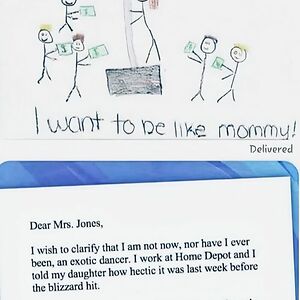 I want to be like mommy!
Delivered
Dear Mrs. Jones,
I wish to clarify that I am not now, nor have I ever
been, an exotic dancer. I work at Home Depot and I
told my daughter how hectic it was last week before
the blizzard hit.